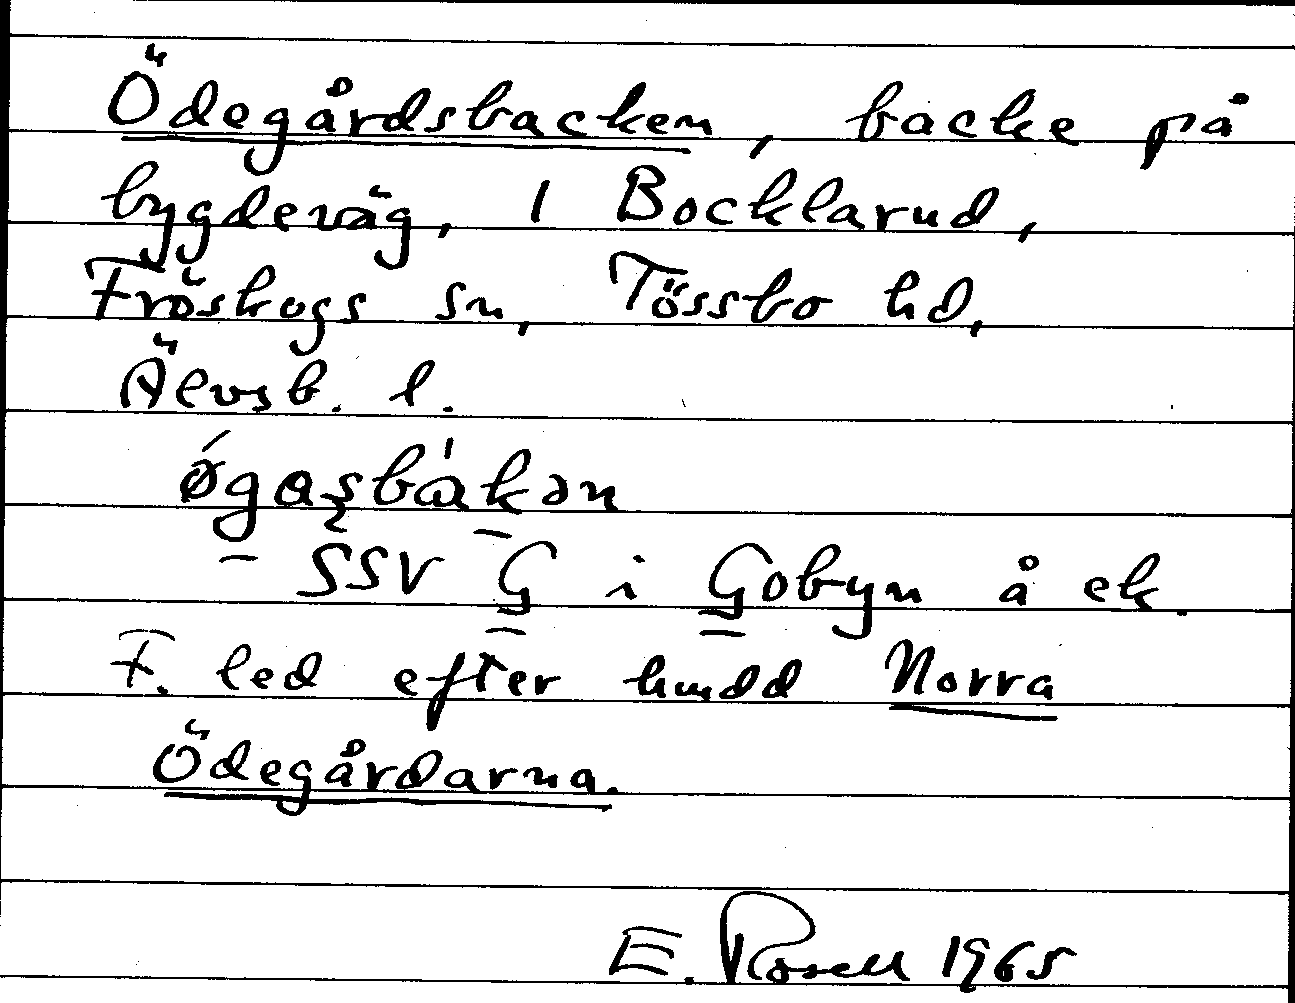 Ödegårdsbacken, backe på
bygdeväg, 1 Bocklarud,
Fröskogs sn, Tössbo hd,
Älvsb. l.
ǿgasbákən
SSV G i Gobyn å ek.
F. led efter hmdd Norra
Ödegårdarna.
E. Rosell 1965